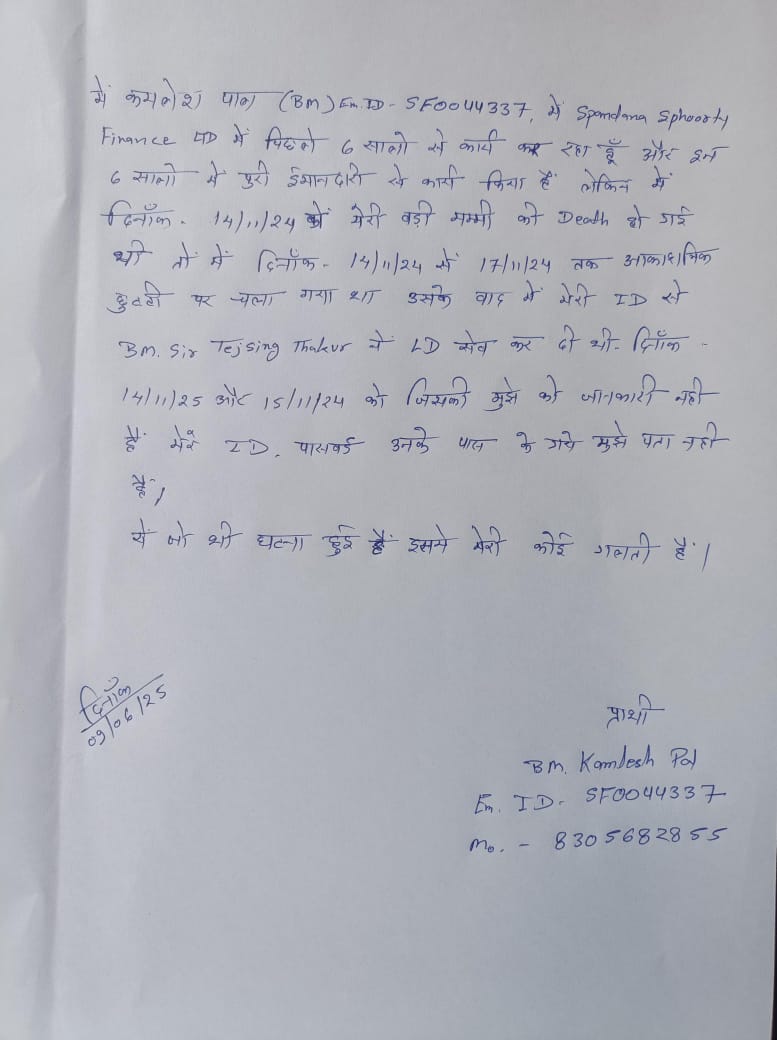 में कमलेश पाल (BM) Em. ID - SF0044337, में Spandana Sphoorty
Finance LTD में पिछले 6 सालो से कार्य कर रहा हूँ और इन
6 सालो में पुरी ईमानदारी से कार्य किया हैं लेकिन में
दिनाँक - 14/11/24 को मेरी बड़ी मम्मी की Death हो गई
थी तो में दिनाँक - 14/11/24 से 17/11/24 तक आकाशमिक
छुटही पर चला गया था उसके बाद में मेरी ID से
BM. Sir Tejsing Thakur ने LD सेव कर दी थी - दिनाँक -
14/11/25 और 15/11/24 को जिसकी मुझे को जानकारी नही
हैं मेरे ID. पासवर्ड उनके पास के गये मुझे पता नही
हैं।
ये जो भी घटना हुई हैं इसमे मेरी कोई गलती हैं।
दिनाँक
09/06/25
प्राथी
BM. Kamlesh Pal
Em. ID - SF0044337
Mo. - 8305682855